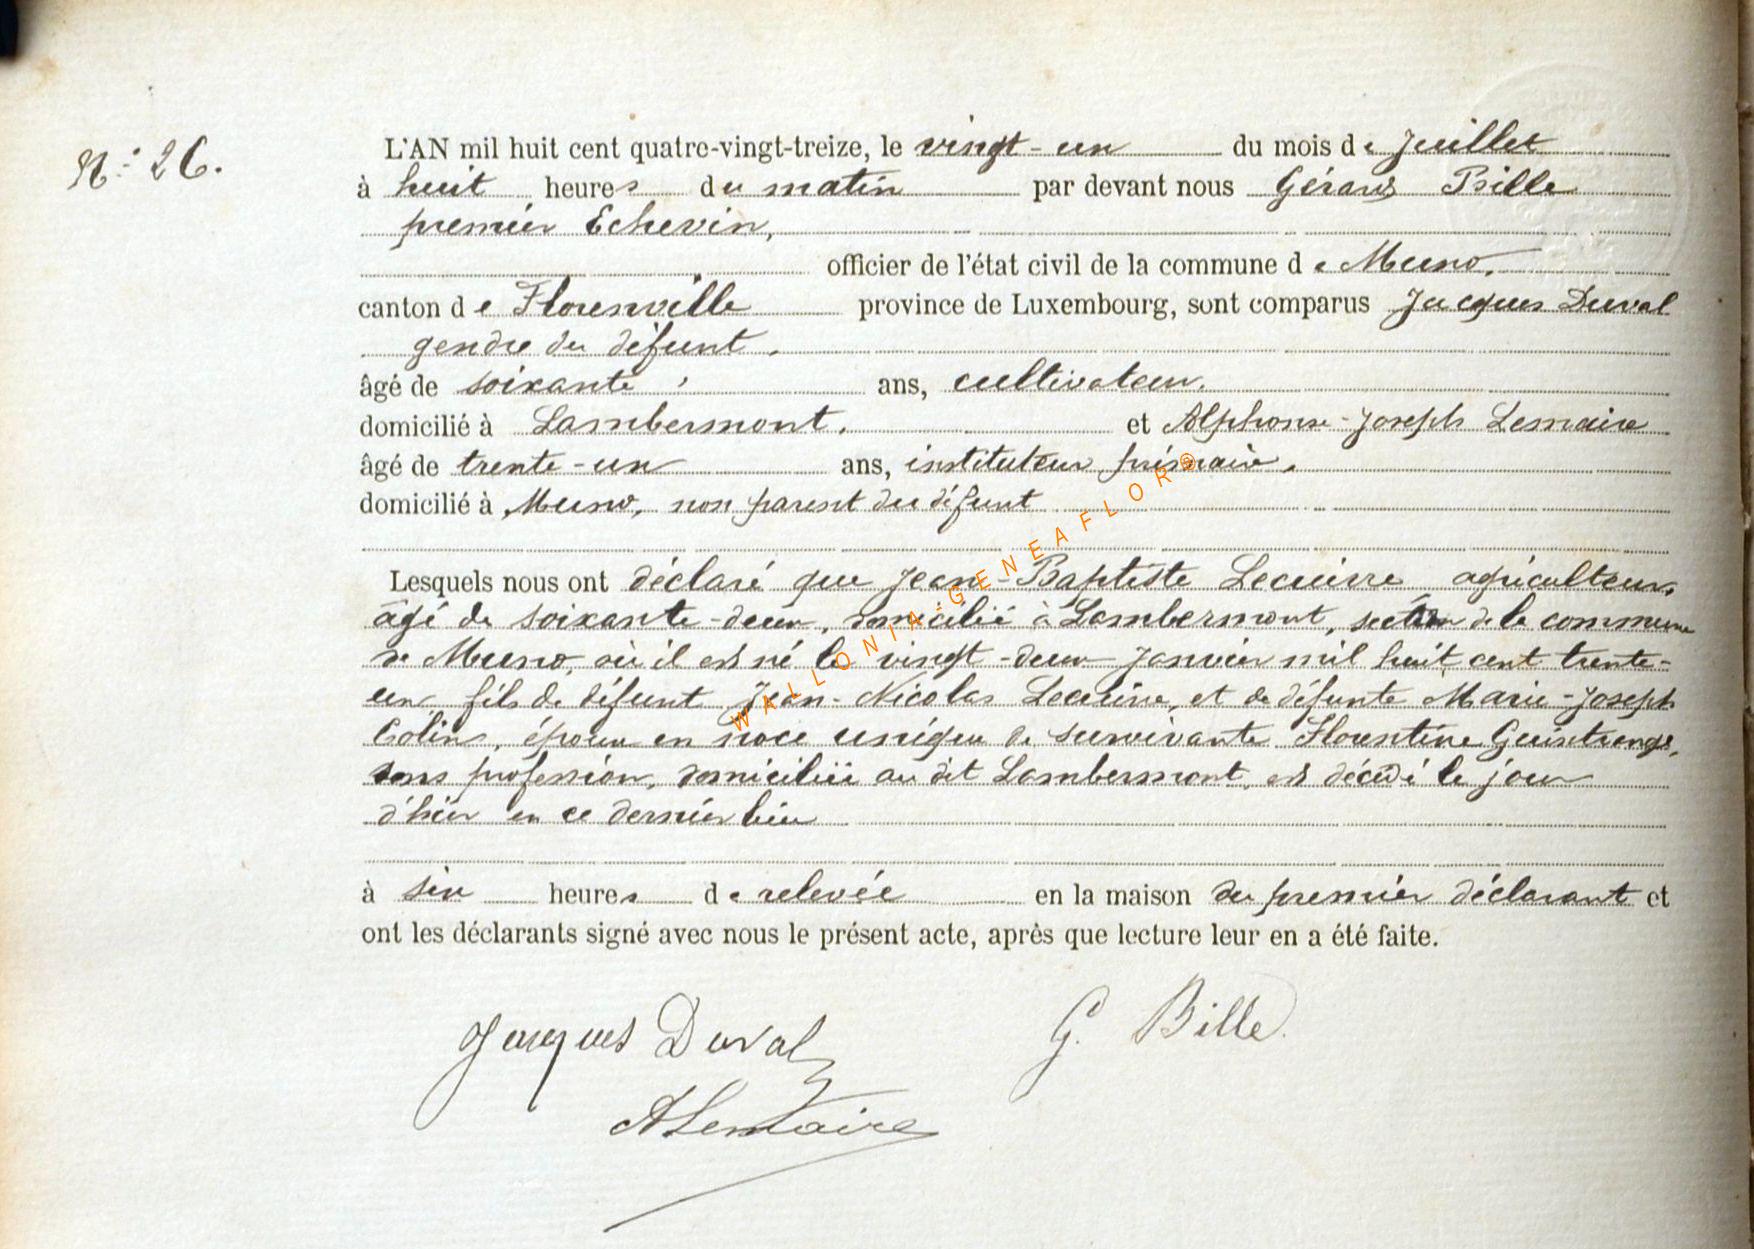 N° 26.
L'AN mil huit cent quatre-vingt-treize, le vingt-un du mois de Juillet
à huit heures du matin par devant nous Gérard Bille
premier Echevin,
officier de l'état civil de la commune de Muno,
canton de Florenville province de Luxembourg, sont comparus Jacques Duval
gendre du défunt,
âgé de soixante ans, cultivateur,
domicilié à Lambermont, et Alphonse-Joseph Lemaire
âgé de trente-un ans, instituteur primaire,
domicilié à Muno, non parent du défunt
Lesquels nous ont déclaré que Jean-Baptiste Lecuivre agriculteur,
âgé de soixante-deux, domicilié à Lambermont, section de la commune
de Muno, où il est né le vingt-deux Janvier mil huit cent trente-
un, fils de défunt Jean-Nicolas Lecuivre, et de défunte Marie-Joseph
Colin, époux en noce unique de survivante Florentine
sans profession, domiciliée au dit Lambermont, est décédé le jour
d'hier en ce dernier lieu
à six heures de relevée en la maison du premier déclarant et
ont les déclarants signé avec nous le présent acte, après que lecture leur en a été faite.
Jacques Duval G. Bille
ALemaire
WALLONIA-GENEAFLOR®